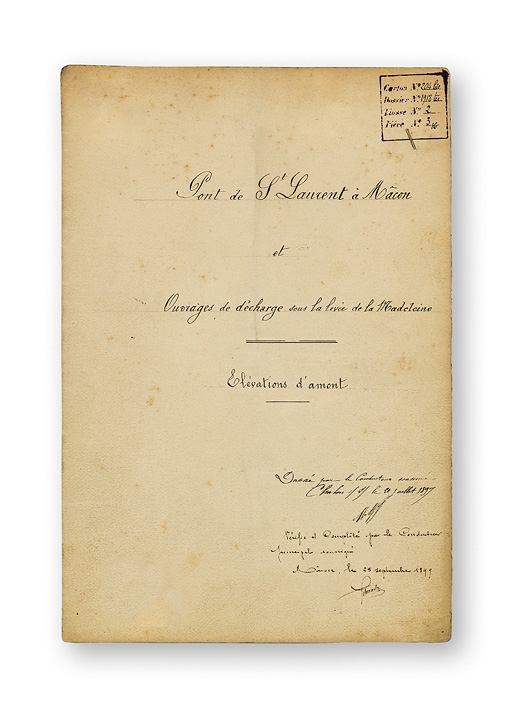 Carton Nº 204 bis
Dossier Nº 1918 bis
Liasse Nº 2
Pièce Nº 3
Pont de St Laurent à Mâcon
et
Ouvrages de décharge sous la levée de la Madeleine
Elévations d'amont
Dressé par le Conducteur soussigné
Chalon s/s le 20 juillet 1897
Vérifié et Complété par le Conducteur
principal soussigné
Mâcon, le 28 septembre 1897